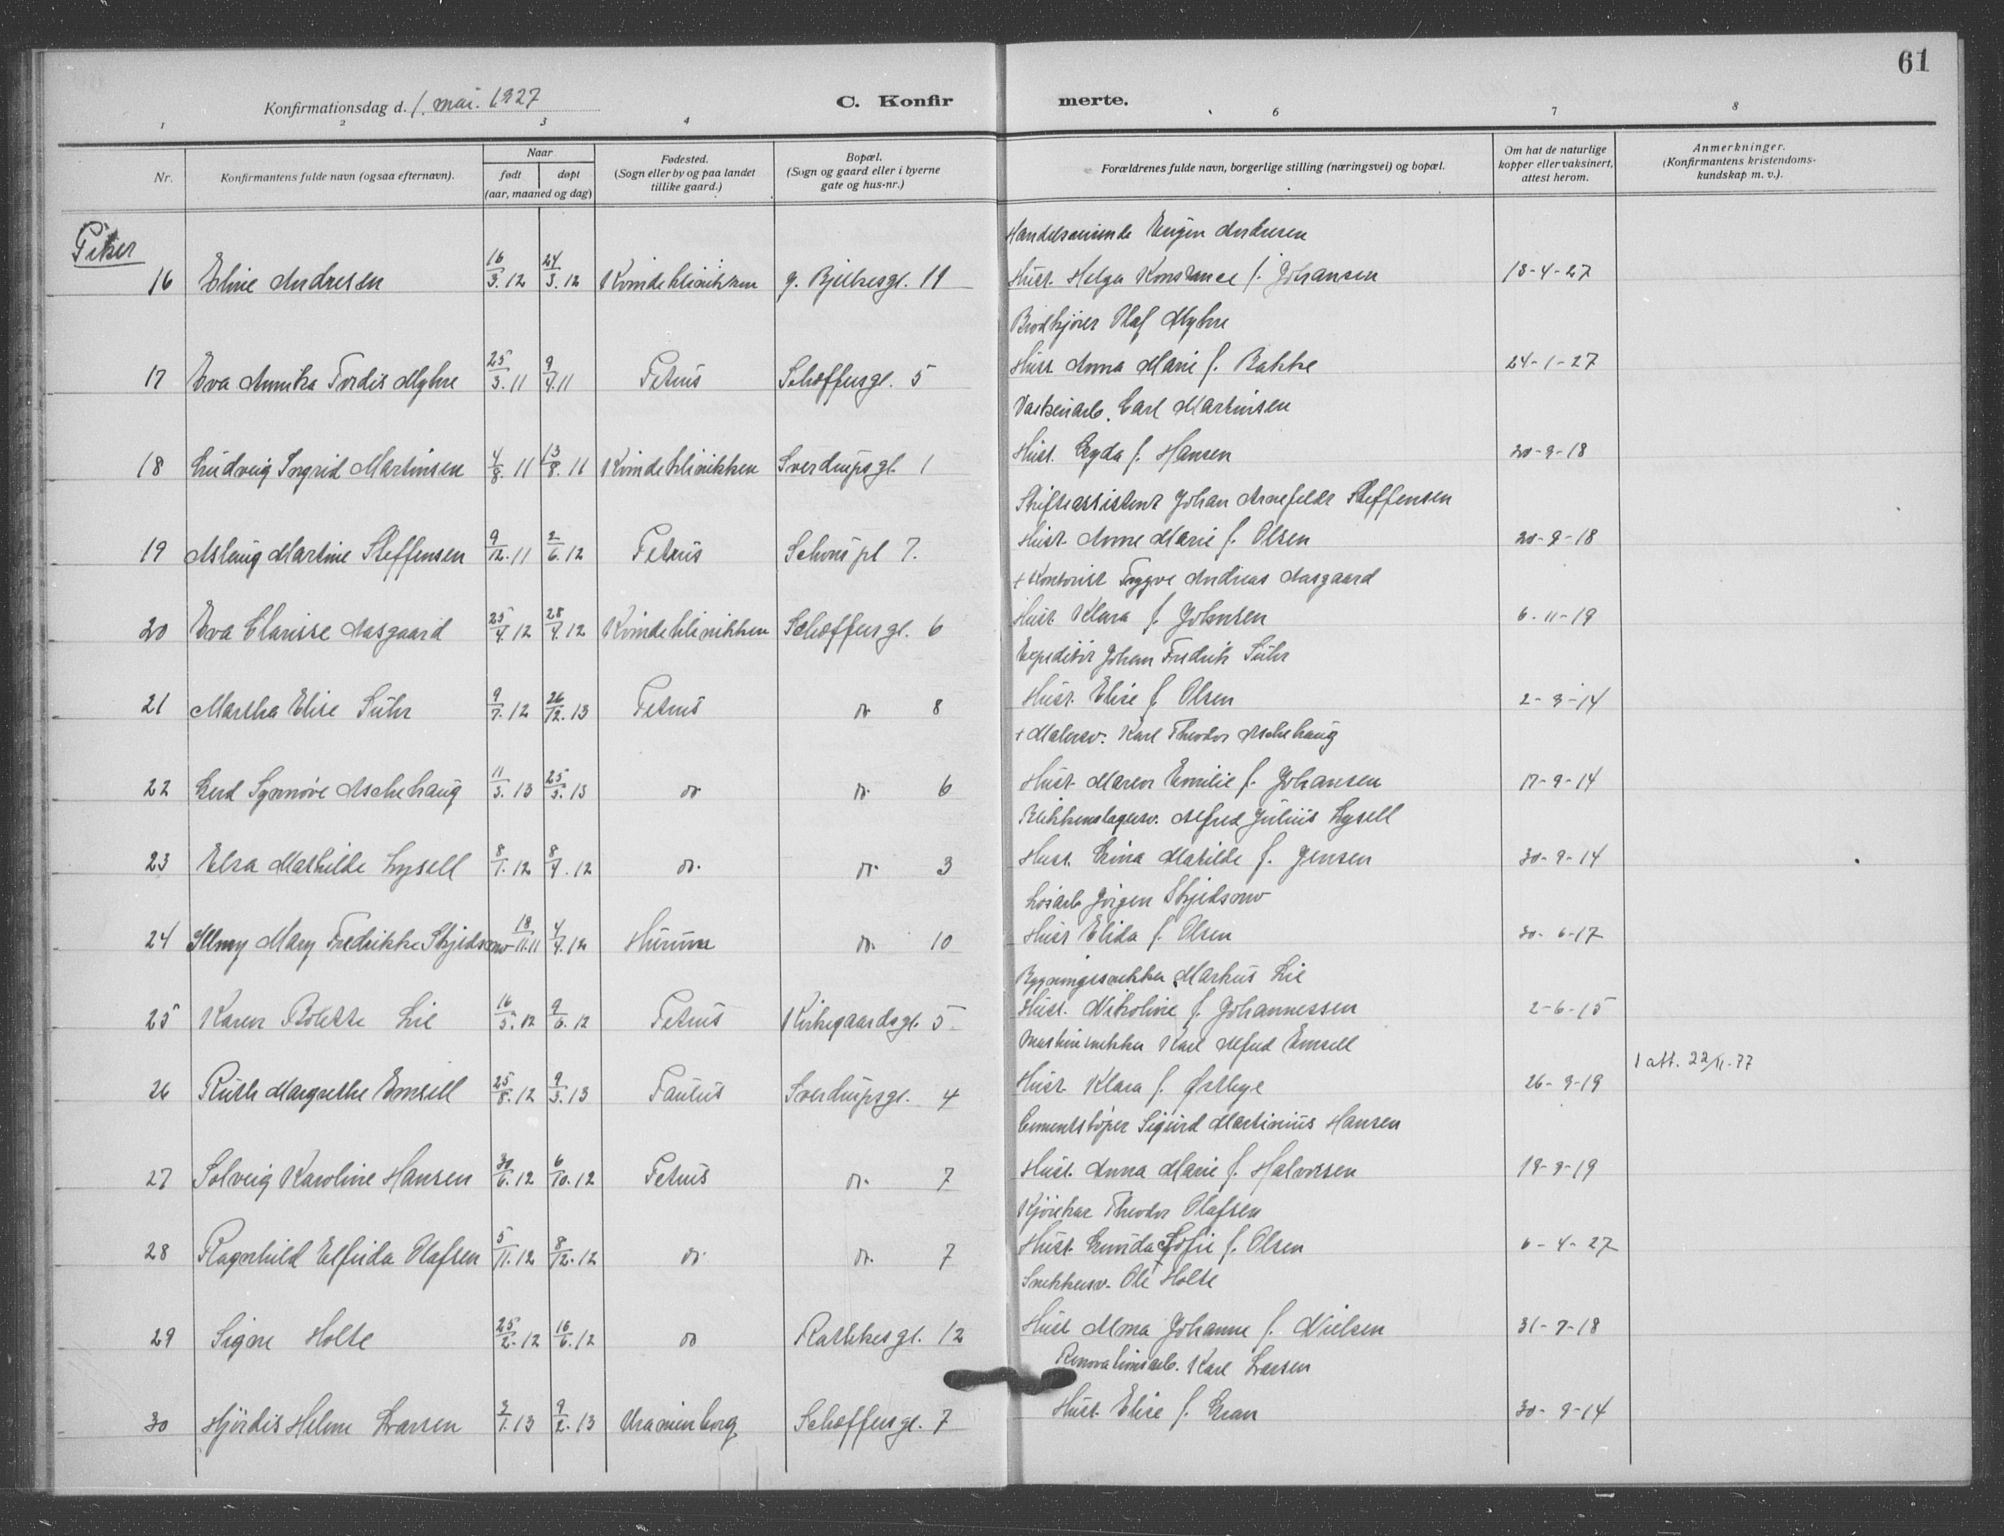 61
Konfirmationsdag d. 1. mai. 1927 C. Konfir merte.
1 2 3 4 6 7 8
Nr. Konfirmantens fulde navn (ogsaa efternavn). Naar født døpt (aar, maaned og dag) Fødested. (Sogn eller by og paa landet tillike gaard.) Bopæl. (Sogn og gaard eller i byerne gate og hus-nr.) Forældrenes fulde navn, borgerlige stilling (næringsvei) og bopæl. Om hat de naturlige kopper eller vaksinert, attest herom. Anmerkninger. (Konfirmantens kristendoms- kundskap m. v.).
Piker
Handelsreisende Eugen Andresen
16 Eline Andresen 16/3. 12 24/3. 12 Kvindeklinikken g. Bjelkesgt. 11 Hust. Helga Konstance f. Johansen 13-4-27
Brødkjører Olaf Myhre
17 Eva Annika Tordis Myhre 25/3. 11 9/4. 11 Petrus Schæffersgt. 5 Hust. Anna Marie f. Bakke 24-1-27
Carl Martinsen
18 Ludveig Ingrid Martinsen 4/8. 11 13/8. 11 Kvindeklinikken Sverdrupsgt. 1 Hust. Gyda f. Hansen 20-9-18
Skifteassistent Johan Arnefeldt Steffensen
19 Aslaug Martine Steffensen 9/12. 11 2/6. 12 Petrus Schous pl 7. Hust. Anne Marie f. Olsen 20-9-18
+ Kontorist Trygve Andreas Aasgaard
20 Eva Clarisse Aasgaard 25/4. 12 28/4. 12 Kvindeklinikken Schæffersgt. 6 Hust. Klara f. Johnsen 6-11-19
Expeditør Johan Fredrik Suhr
21 Martha Elise Suhr 9/7. 12 26/12. 13 Petrus do 8 Hust. Elise f. Olsen 2-9-14
+ Malersv. Karl Theodor Aschehaug
22 Gerd Synnøve Aschehaug 11/3. 13 25/3. 13 do do. 6 Hust. Maren Emilie f. Johansen 17-9-14
Blikkenslagersv. Alfred Julius Lysell
23 Elsa Mathilde Lysell 8/1. 12 8/4. 12 do. do. 3 Hust. Gina Matilde f. Jensen 30-9-14
Løsarb Jørgen Skjedsmo
24 Mary Fredrikke Skjedsmo 18/11. 11 4/4. 12 Hurum do. 10 Hust Elida f. Olsen 30-6-17
Bygningssnekker Markus Lie
25 Karen Bolette Lie 16/5. 12 9/6. 12 Petrus Kirkegaardsgt. 5. Hust. Nikoline f. Johannessen 2-6-15
Maskinsnekker Karl Alfred Emsell
26 Ruth Margrethe Emsell 25/8. 12 9/3. 13 Paulus Sverdrupsgt. 4 Hust. Klara f. Østbye 26-9-19 1 att. 22/11.77
Cementstøper Sigurd Martinius Hansen
27 Solveig Karoline Hansen 30/6. 12 6/10. 12 Petrus do. 7 Hust. Anna Marie f. Halvorsen 19-9-19
Kjørekar Theodor Olafsen
28 Ragnhild Elfrida Olafsen 5/11. 12 8/12. 12 do. do. 7 Hust. Gunda Sofie f. Olsen 6-4-27
Snekkersv. Ole Holte
29 Signe Holte 25/2. 12 16/6. 12 do Rathkesgt. 12 Hust. Alma Johanne f. Nielsen 31-7-18
Renovationsarb. Karl Larsen
30 Hjørdis Helene Larsen 3/1. 13 9/2. 13 Uranienborg Schæffersgt. 7 Hust. Elise f. Gran 30-9-14